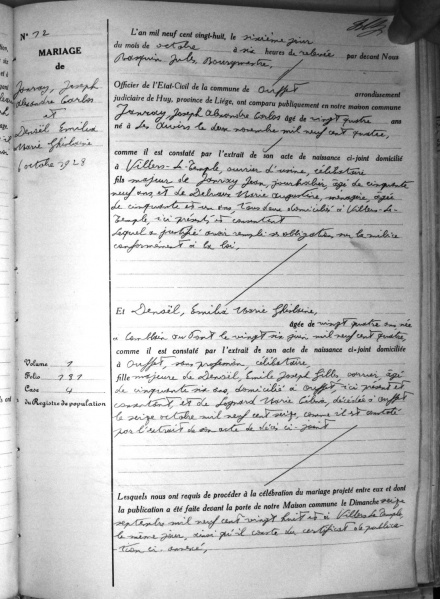 N° 12
MARIAGE
de
Joseph
Alexandre Carlos
et
Densël Emilia
Marie Ghislaine
6 octobre 1928
L'an mil neuf cent vingt-huit, le sixième jour
du mois de octobre à six heures de relevée par devant Nous
Jules Bourgmestre,
Officier de l'Etat-Civil de la commune de Ouffet arrondissement
judiciaire de Huy, province de Liège, ont comparu publiquement en notre maison commune
Joseph Alexandre Carlos âgé de vingt quatre ans
né à Les Avins le deux novembre mil neuf cent quatre,
comme il est constaté par l'extrait de son acte de naissance ci-joint domicilié
à Villers-Le-Temple, ouvrier d'usine, célibataire
fils majeur de Jean, journalier, âgé de cinquante
neuf ans et de Marie Augustine, ménagère, âgée
de cinquante et un ans, tous deux domiciliés à Villers-Le-
Temple, ici présents et consentant
Lequel a justifié avoir rempli ses obligations sur la milice
conformément à la loi.
Et Densël, Emilia Marie Ghislaine,
âgée de vingt quatre ans née
à Comblain au Pont le vingt six juin mil neuf cent quatre,
comme il est constaté par l'extrait de son acte de naissance ci-joint domiciliée
à Ouffet, sans profession, célibataire,
fille majeure de Densël Emile Joseph Gilles, âgé
de cinquante ans, domicilié à Ouffet ici présent et
consentant et de Marie Célina, décédée à Ouffet
le seize octobre mil neuf cent seize, comme il est constaté
par l'extrait de son acte de décès ci-joint
Volume 1
Folio 191
Case 4
du Registre de population
Lesquels nous ont requis de procéder à la célébration du mariage projeté entre eux et dont
la publication a été faite devant la porte de notre Maison commune le Dimanche seize
septembre mil neuf cent vingt huit et à Villers-le-Temple,
le même jour, ainsi qu'il conste du certificat de publica-
tion ci-annexé,